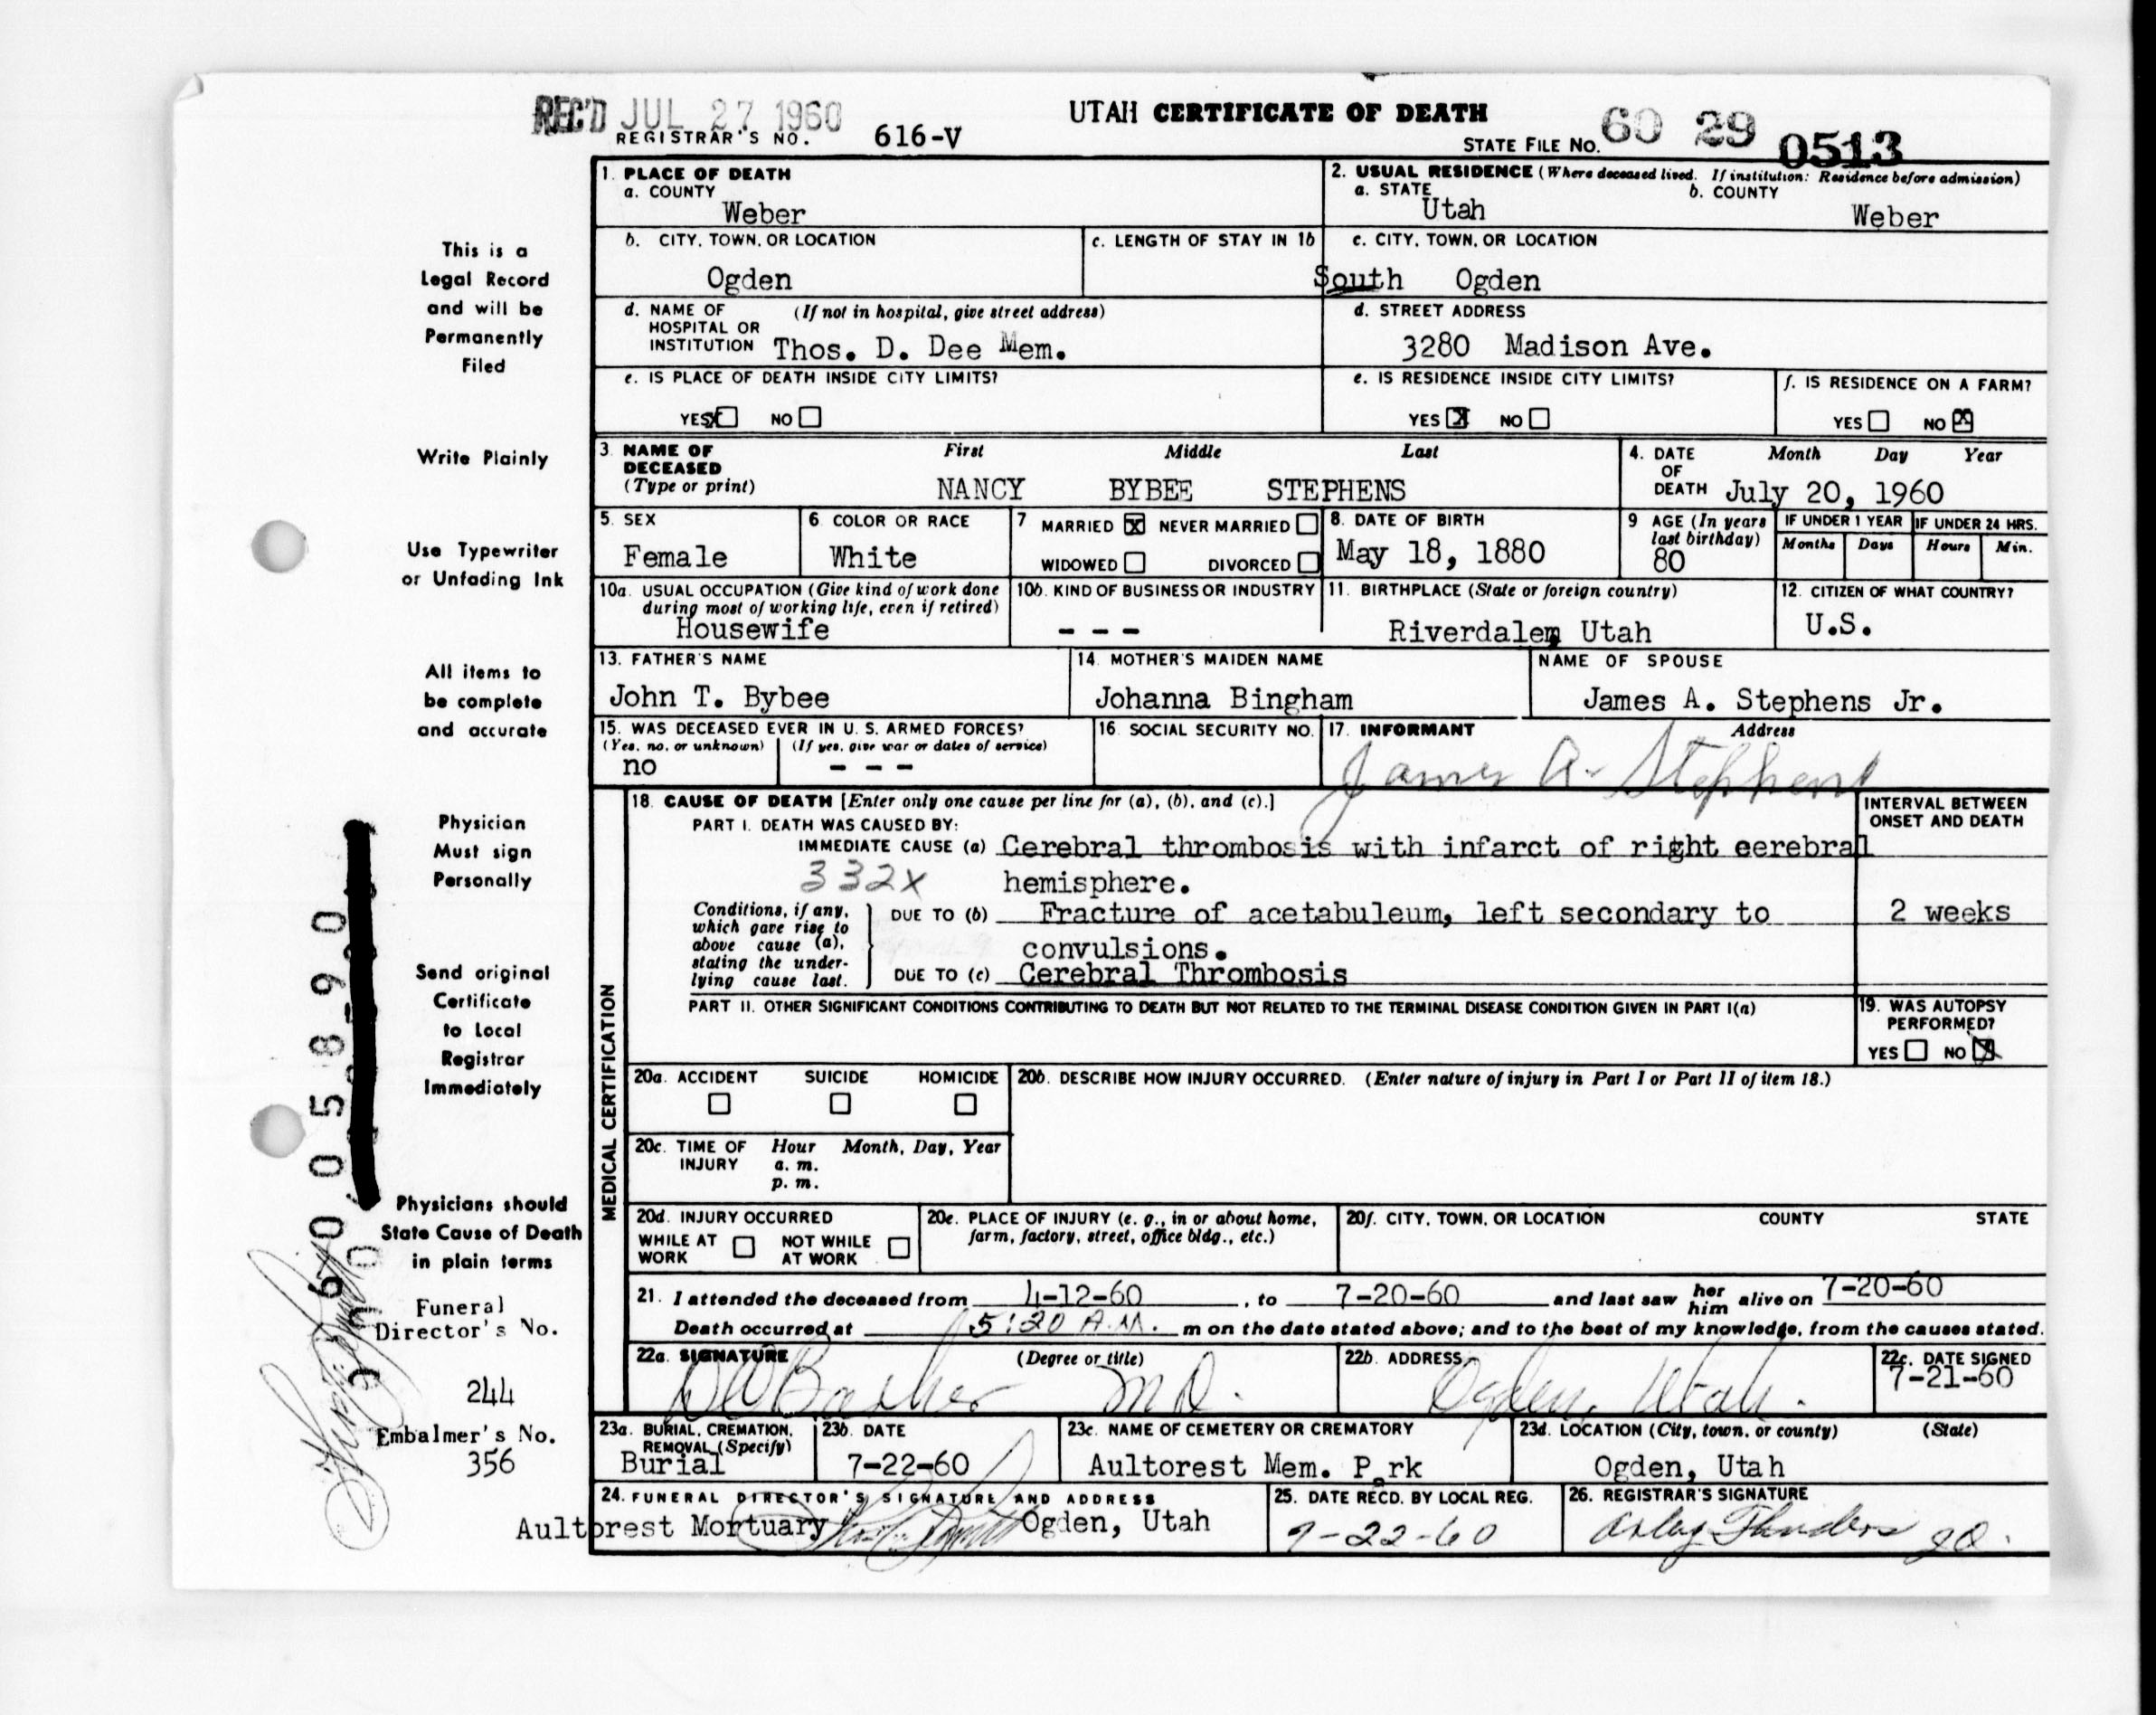 REC'D JUL 27 1960
UTAH CERTIFICATE OF DEATH
REGISTRAR'S NO. 616-V
STATE FILE NO. 60 29 0513
This is a
Legal Record
and will be
Permanently
Filed
Write Plainly
Use Typewriter
or Unfading Ink
All items to
be complete
and accurate
Physician
Must sign
Personally
Send original
Certificate
to Local
Registrar
Immediately
Physicians should
State Cause of Death
in plain terms
Funeral
Director's No.
244
Embalmer's No.
356
1. PLACE OF DEATH
a. COUNTY
Weber
2. USUAL RESIDENCE (Where deceased lived. If institution: Residence before admission)
a. STATE b. COUNTY
Utah Weber
b. CITY, TOWN, OR LOCATION
Ogden
c. LENGTH OF STAY IN 1b
c. CITY, TOWN, OR LOCATION
South Ogden
d. NAME OF (If not in hospital, give street address)
HOSPITAL OR
INSTITUTION Thos. D. Dee Mem.
d. STREET ADDRESS
3280 Madison Ave.
e. IS PLACE OF DEATH INSIDE CITY LIMITS?
YES X NO
e. IS RESIDENCE INSIDE CITY LIMITS?
YES X NO
f. IS RESIDENCE ON A FARM?
YES NO X
3. NAME OF First Middle Last
DECEASED
(Type or print) NANCY BYBEE STEPHENS
4. DATE Month Day Year
OF
DEATH July 20, 1960
5. SEX
Female
6. COLOR OR RACE
White
7 MARRIED X NEVER MARRIED
WIDOWED DIVORCED
8. DATE OF BIRTH
May 18, 1880
9 AGE (In years
last birthday)
80
IF UNDER 1 YEAR
Months Days
IF UNDER 24 HRS.
Hours Min.
10a. USUAL OCCUPATION (Give kind of work done
during most of working life, even if retired)
Housewife
10b. KIND OF BUSINESS OR INDUSTRY
- - -
11. BIRTHPLACE (State or foreign country)
Riverdale, Utah
12. CITIZEN OF WHAT COUNTRY?
U.S.
13. FATHER'S NAME
John T. Bybee
14. MOTHER'S MAIDEN NAME
Johanna Bingham
NAME OF SPOUSE
James A. Stephens Jr.
15. WAS DECEASED EVER IN U. S. ARMED FORCES?
(Yes, no, or unknown) (If yes, give war or dates of service)
no - - -
16. SOCIAL SECURITY NO.
17. INFORMANT Address
James A. Stephens
MEDICAL CERTIFICATION
18. CAUSE OF DEATH [Enter only one cause per line for (a), (b), and (c).]
PART I. DEATH WAS CAUSED BY:
IMMEDIATE CAUSE (a) Cerebral thrombosis with infarct of right cerebral
332X hemisphere.
INTERVAL BETWEEN
ONSET AND DEATH
Conditions, if any,
which gave rise to
above cause (a),
stating the under-
lying cause last.
DUE TO (b) Fracture of acetabuleum, left secondary to 2 weeks
convulsions.
DUE TO (c) Cerebral Thrombosis
PART II. OTHER SIGNIFICANT CONDITIONS CONTRIBUTING TO DEATH BUT NOT RELATED TO THE TERMINAL DISEASE CONDITION GIVEN IN PART I(a)
19. WAS AUTOPSY
PERFORMED?
YES NO X
20a. ACCIDENT SUICIDE HOMICIDE
20b. DESCRIBE HOW INJURY OCCURRED. (Enter nature of injury in Part I or Part II of item 18.)
20c. TIME OF Hour Month, Day, Year
INJURY a. m.
p. m.
20d. INJURY OCCURRED
WHILE AT NOT WHILE
WORK AT WORK
20e. PLACE OF INJURY (e. g., in or about home,
farm, factory, street, office bldg., etc.)
20f. CITY, TOWN, OR LOCATION COUNTY STATE
21. I attended the deceased from 4-12-60, to 7-20-60 and last saw her him alive on 7-20-60
Death occurred at 5:20 A.M. m on the date stated above; and to the best of my knowledge, from the causes stated.
22a. SIGNATURE (Degree or title)
M.D.
22b. ADDRESS
Ogden, Utah.
22c. DATE SIGNED
7-21-60
23a. BURIAL, CREMATION,
REMOVAL (Specify)
Burial
23b. DATE
7-22-60
23c. NAME OF CEMETERY OR CREMATORY
Aultorest Mem. P rk
23d. LOCATION (City, town, or county) (State)
Ogden, Utah
24. FUNERAL DIRECTOR'S SIGNATURE AND ADDRESS
Aultorest Mortuary Ogden, Utah
25. DATE RECD. BY LOCAL REG.
7-22-60
26. REGISTRAR'S SIGNATURE